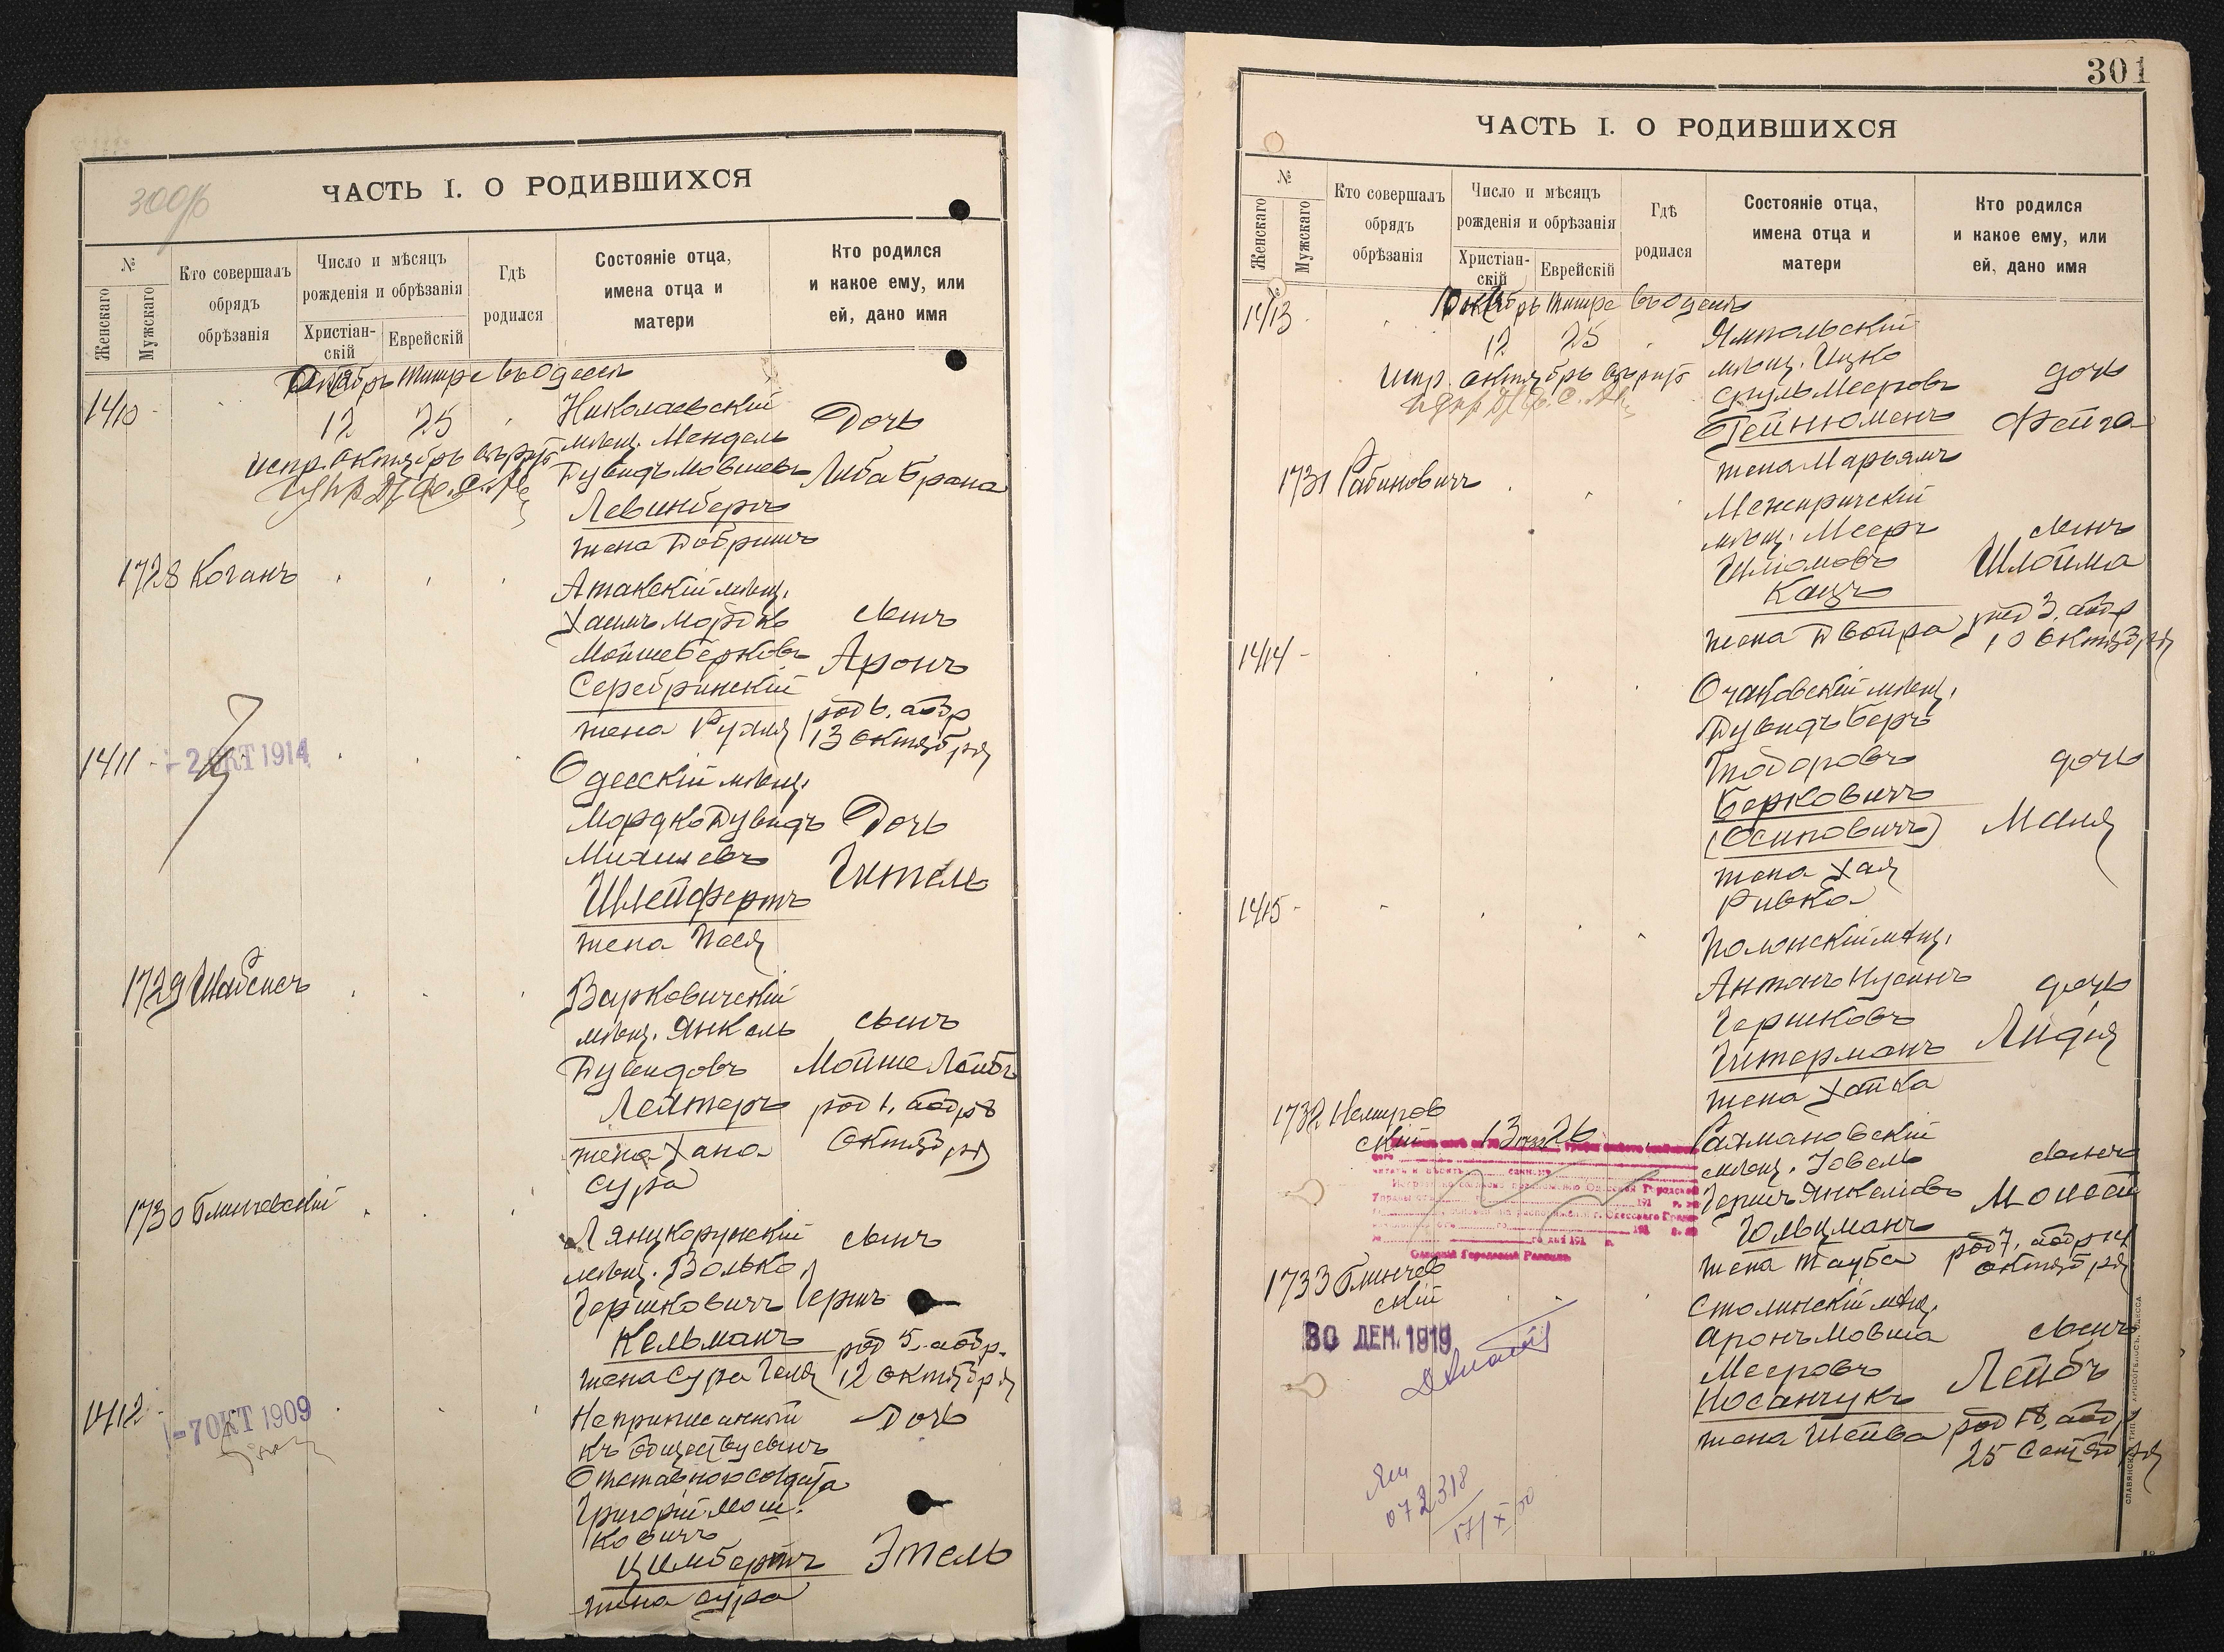 300
ЧАСТЬ I. О РОДИВШИХСЯ
№
Женскаго
Мужскаго
Кто совершалъ
обрядъ
обрѣзанія
Число и мѣсяцъ
рожденія и обрѣзанія
Христіан-
скій
Еврейскій
Гдѣ
родился
Состояніе отца,
имена отца и
матери
Кто родился
и какое ему, или
ей, дано имя
Октябрь Тишре въ Одессѣ
1410
12 25
Николаевскій
мѣщ. Мендель
Дувидъ Мовшевъ
Левинбергъ
жена Добришъ
Дочь
Либа Брана
испр. октябрь
1728 Коганъ
Атакскій мѣщ.
Хаимъ Мордко
Мойше Берковъ
Серебринскій
жена Рухля
сынъ
Аронъ
род 6, обр
13 октября
1411
-2 ОКТ 1914
Одесскій мѣщ.
Мордко Дувидъ
Михелевъ
Шлейфертъ
жена Песя
Дочь
Гитель
1729 Шабсисъ
Варковичскій
мѣщ. Янкель
Дувидовъ
Лехтеръ
жена Хана
Сура
сынъ
Мойше Лейбъ
род 1, обр 8
октября
1730 Блинчевскій
Лянцкорунскій
мѣщ. Волько
Гершковичъ
Кельманъ
жена Сура Геля
сынъ
Гершъ
род 5, обр.
12 октября
1412
-7 ОКТ 1909
Неприписанный
къ обществу сынъ
Отставного солдата
Григорій Мош.
ковичъ
Цимбертъ
жена Сура
Дочь
Этель
301
ЧАСТЬ I. О РОДИВШИХСЯ
№
Женскаго
Мужскаго
Кто совершалъ
обрядъ
обрѣзанія
Число и мѣсяцъ
рожденія и обрѣзанія
Христіан-
скій
Еврейскій
Гдѣ
родился
Состояніе отца,
имена отца и
матери
Кто родился
и какое ему, или
ей, дано имя
Октябрь Тишре въ Одессѣ
1413
12 25
Ямпольскій
мѣщ. Ицко
Сруль Мееровъ
Гейнюменъ
жена Марьямъ
дочь
Фейга
испр. октябрь
1731 Рабиновичъ
Межиричскій
мѣщ. Мееръ
Шліомовъ
Кацъ
жена Двойра
сынъ
Шлойма
род 3, обр
10 октября
1414
Очаковскій мѣщ.
Дувидъ Беръ
Тодоровъ
Берковичъ
(Осиповичъ)
жена Хая
Ривка
дочь
Маля
1415
Полонскій мѣщ.
Антонъ Нусинъ
Гершковъ
Гитерманъ
жена Хайка
дочь
Лидія
1732 Немиров
скій
13 26
Рахмановскій
мѣщ. Іовель
Гершъ Янкелевъ
Гольцманъ
жена Тауба
сынъ
Моисей
род 7, обр 14
октября
Одесскій Городовой Раввинъ
1733 Блинчев
скій
30 ДЕК. 1919
Столинскій мѣщ.
Аронъ Мовша
Мееровъ
Косанчукъ
жена Шейва
сынъ
Лейбъ
род 18, обр
25 Сентября
072318
17/X